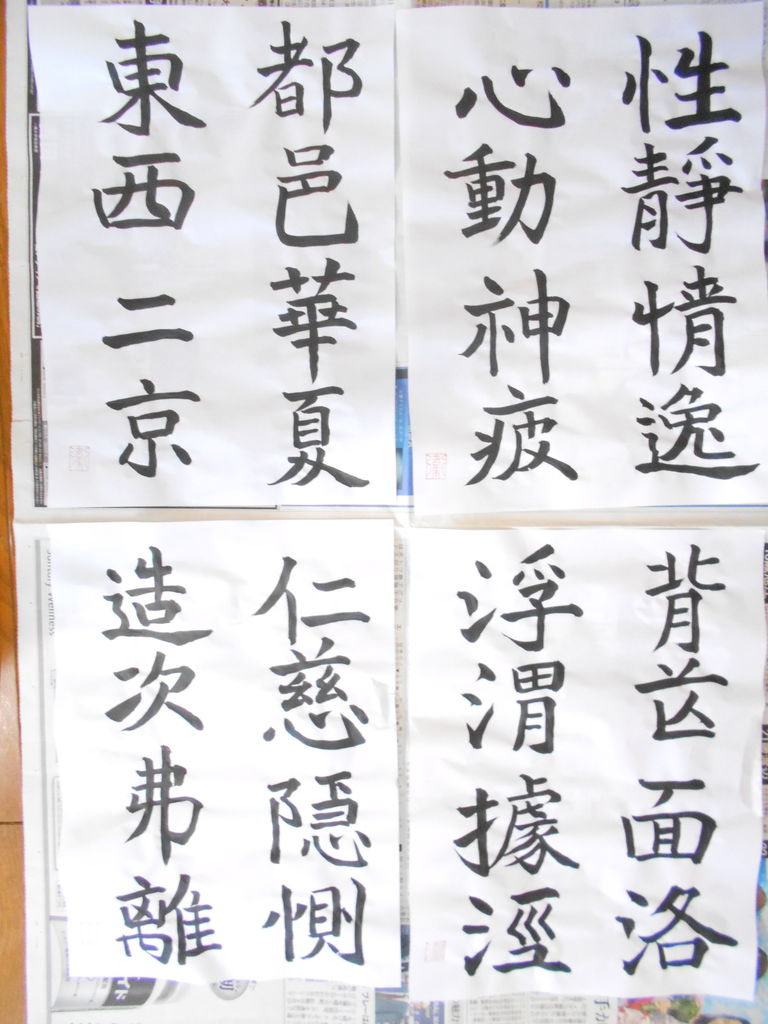 性靜情逸
心動神疲
都邑華夏
東西二京
背芒面洛
浮渭據涇
仁慈隠惻
造次弗離